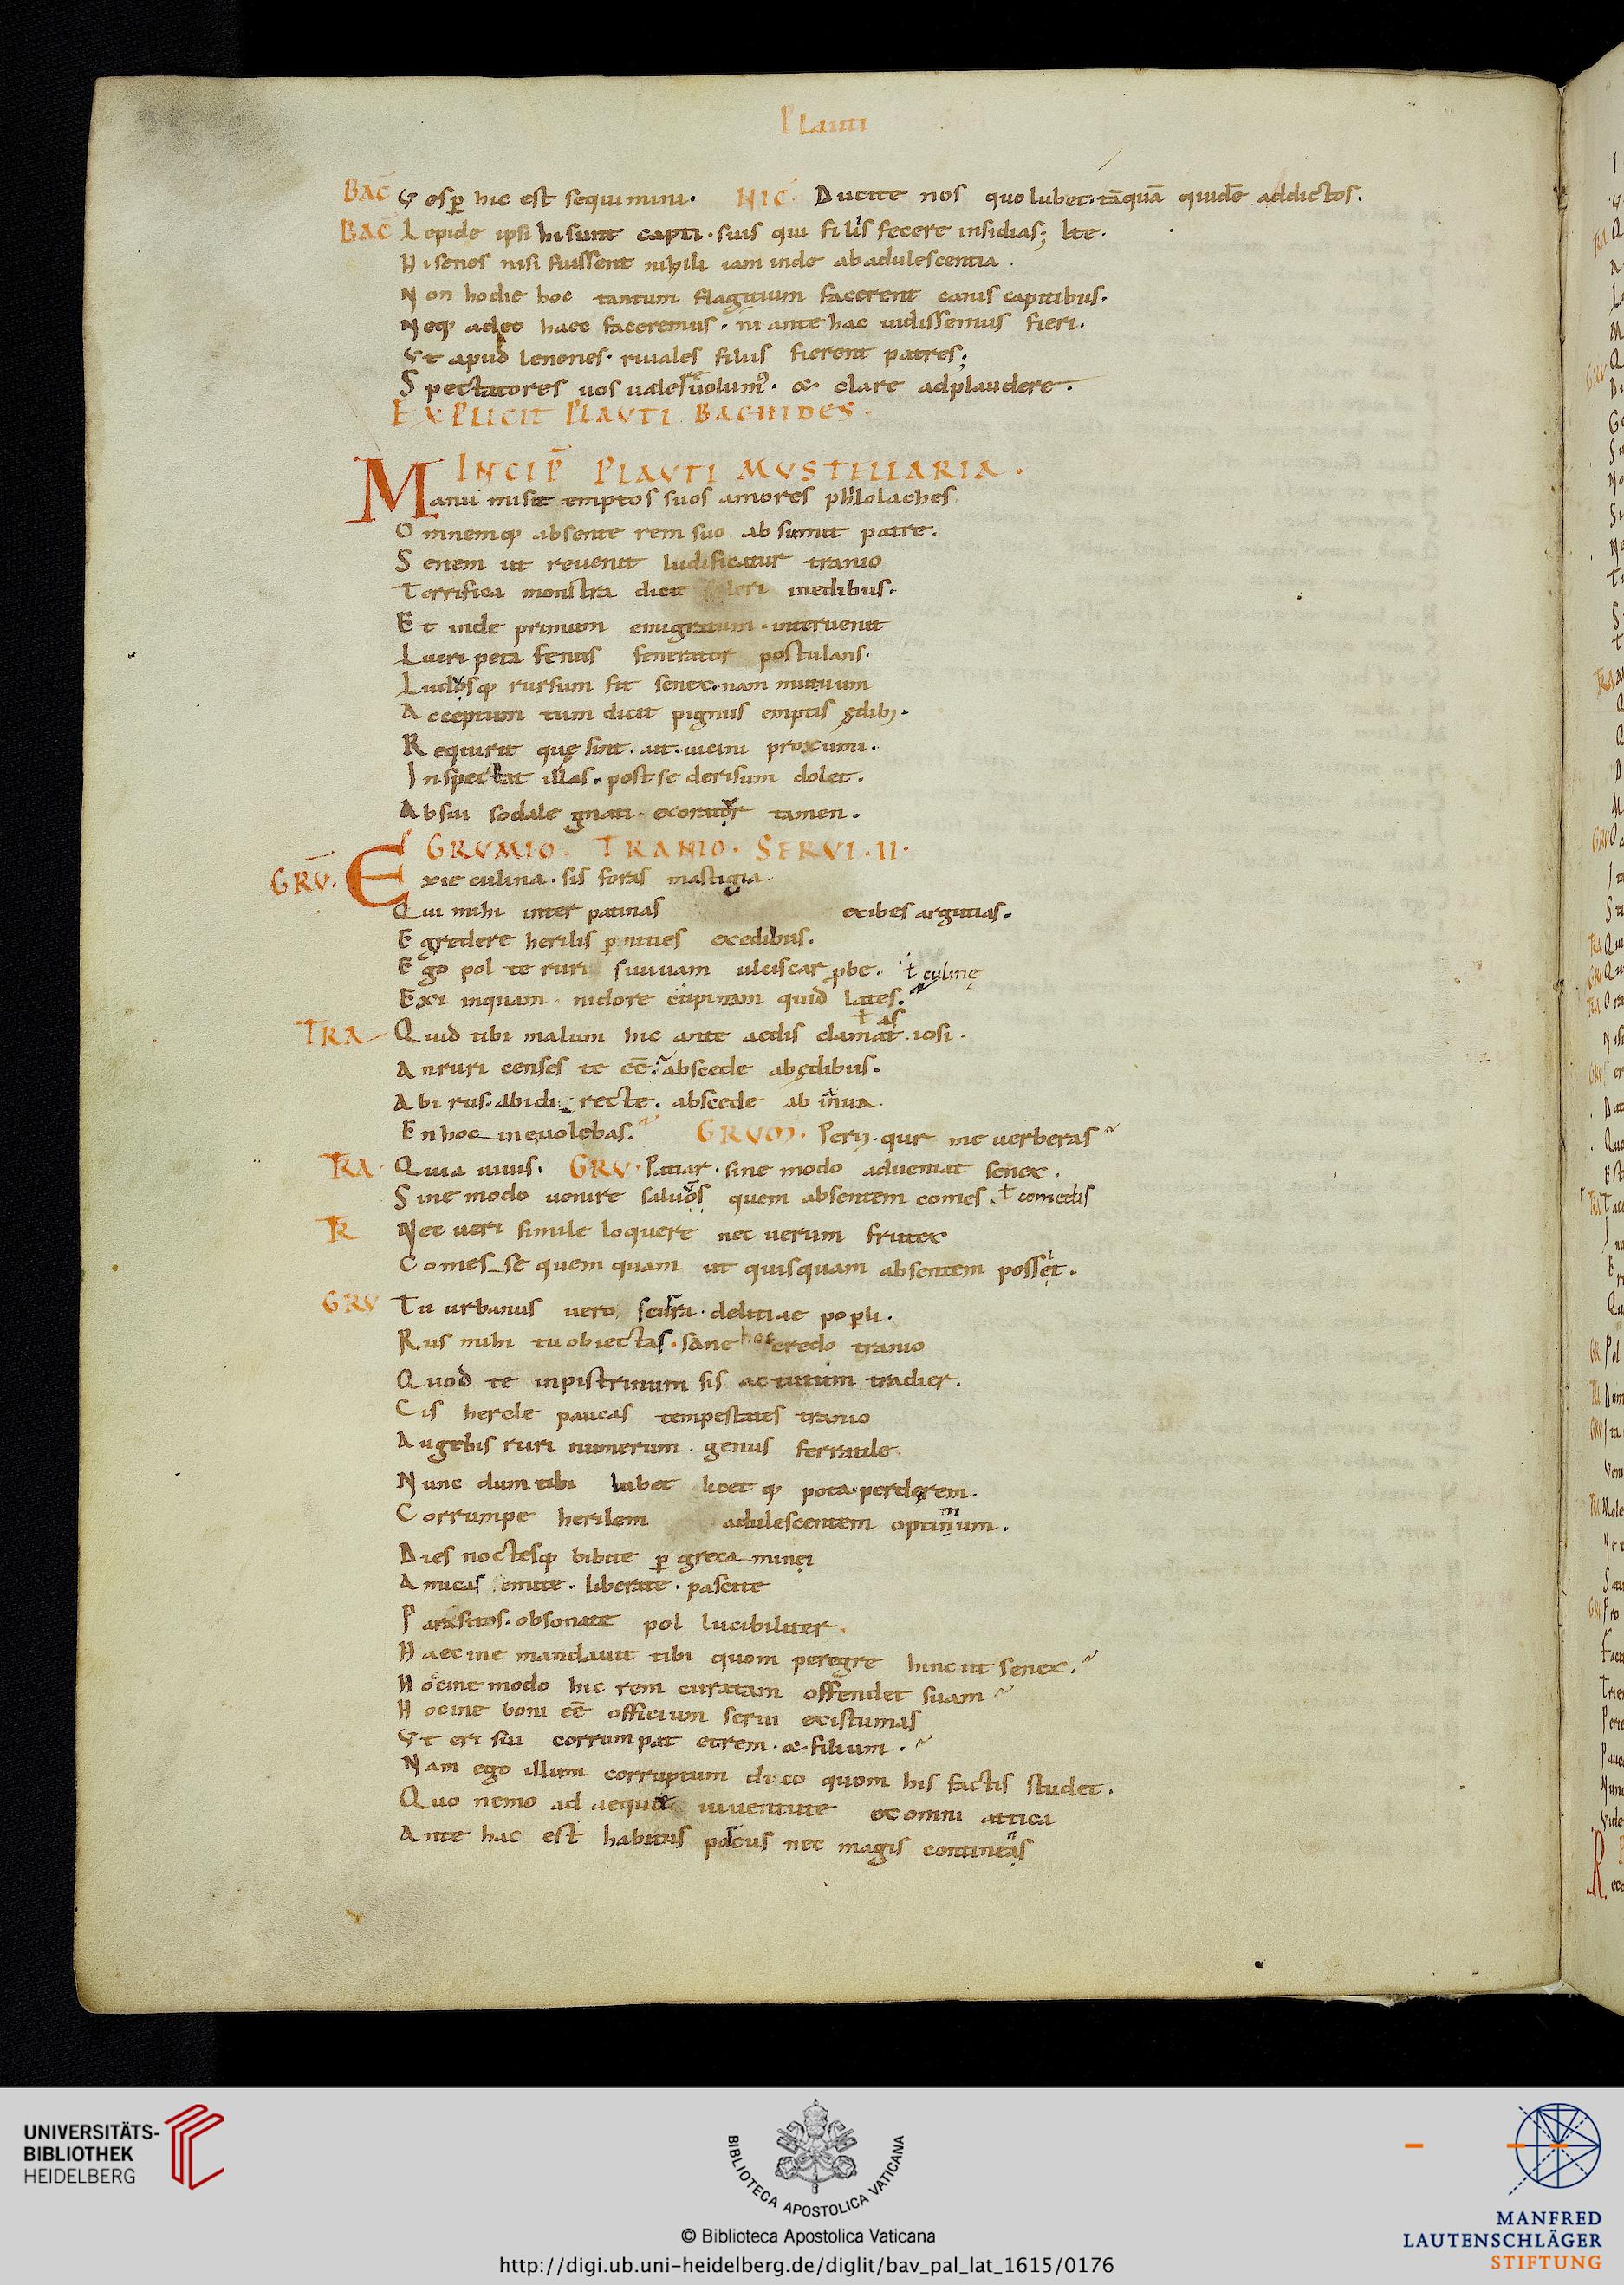 Plauti
BAC̄ Vesp̄ hic est sequimini. NIC̄. Ducite nos quo lubet. tāquā quidē addictos.
BAC̄ Lepide ipsi hi sunt capti. suis qui filiis fecere insidias; Ite.
Hi senes nisi fuissent nihili iam inde ab adulescentia.
Non hodie hoc tantum flagitium facerent canis capitibus.
Neq; adeo haec faceremus. ni ante hac uidissemus fieri.
Vt apud lenones. riuales filiis fierent patres;
Spectatores uos ualere uolum'. & clare adplaudere.
EXPLICIT PLAVTI BACHIDES.
INCIP̄ PLAVTI MVSTELLARIA.
Manu misit emptos suos amores philolaches
Omnemq; absente rem suo absumit patre.
Senem ut reuenit ludificatur tranio
Terrifica monstra dicit fieri inedibus.
Et inde primum emigratum. interuenit
Lucri peta fenus fenerator postulans.
Ludosq; rursum fit senex. nam mutuum
Acceptum tum dicit pignus emptis ędib;.
Requirit quę sint. ait. uicini proxumi.
Inspectat illas. post se derisum dolet.
Ab sui sodale gnati exoratur tamen.
GRVMIO. TRANIO. SERVI. II.
GRV̄. Exie culina. sis foras mastigia.
Qui mihi inter patinas exibes argutias.
Egredere herilis p̄nities exedibus.
Ego pol te ruri si uiuam ulciscar pbe. ł culinę
Exi inquam. nidore cupinam quid lates.
TRA Quid tibi malum hic ante aedis clamat. iosi. ł as
An ruri censes te eē. abscede ab ędibus.
Abi rus. abi directe. abscede ab ianua.
En hoc ine uolebas. GRVM. Perij. qur me uerberas
TRA. Quia uiuis. GRV. Patiar. sine modo adueniat senex.
Sine modo uenire saluos quem absentem comes. ł comedis
TR Nec ueri simile loquere nec uerum frutex
Comesse quem quam ut quisquam absentem possit.
GRV Tu urbanus uero scurra. delitiae popli.
Rus mihi tu obiectas. sane hoc credo tranio
Quod te inpistrinum sis actutum tradier.
Cis hercle paucas tempestates tranio
Augebis ruri numerum. genus ferratile.
Nunc dum tibi lubet licet q; pota. perde rem.
Corrumpe herilem adulescentem optimum.
Dies noctesq; bibite p̄ greca mini
Amicas emite. liberate. pascite
Parasitos. obsonate pol lucibiliter.
Haecine mandauit tibi quom peregre hinc it senex.
Hocine modo hic rem curatam offendet suam
Hocine boni eē officium serui existumas
Vt eri sui corrumpat et rem. & filium.
Nam ego illum corruptum duco quom his factis studet.
Quo nemo ad aeque iuuentute ex omni attica
Ante hac est habitus parcus nec magis continens
UNIVERSITÄTS-
BIBLIOTHEK
HEIDELBERG
BIBLIOTECA APOSTOLICA VATICANA
© Biblioteca Apostolica Vaticana
http://digi.ub.uni-heidelberg.de/diglit/bav_pal_lat_1615/0176
MANFRED
LAUTENSCHLÄGER
STIFTUNG